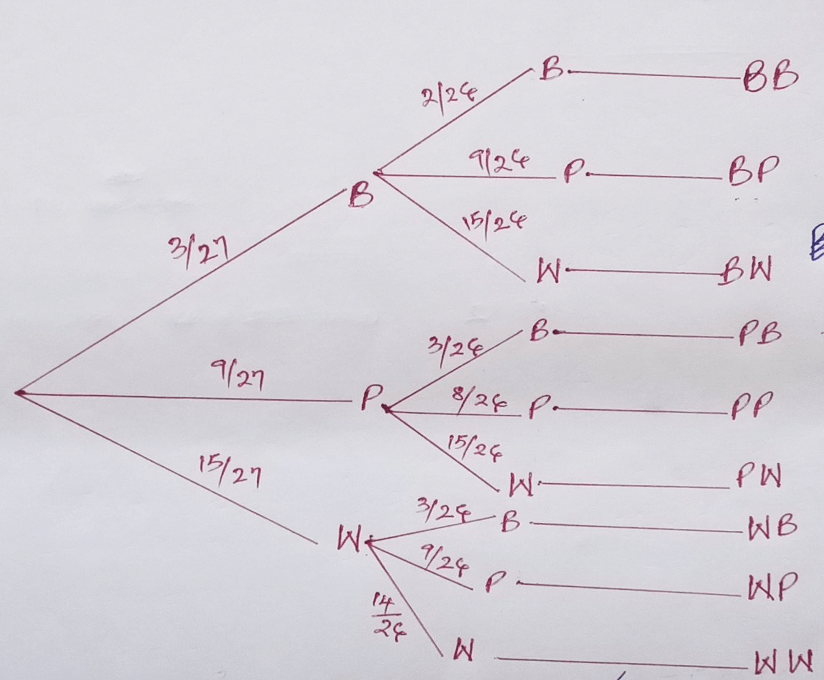 B BB
2/26
9/26 P BP
B
15/26
3/27
W BW
B PB
3/26
9/27 P 8/26 P PP
15/26
15/27 W PW
3/26 B WB
W
9/26 P WP
14/26
W WW